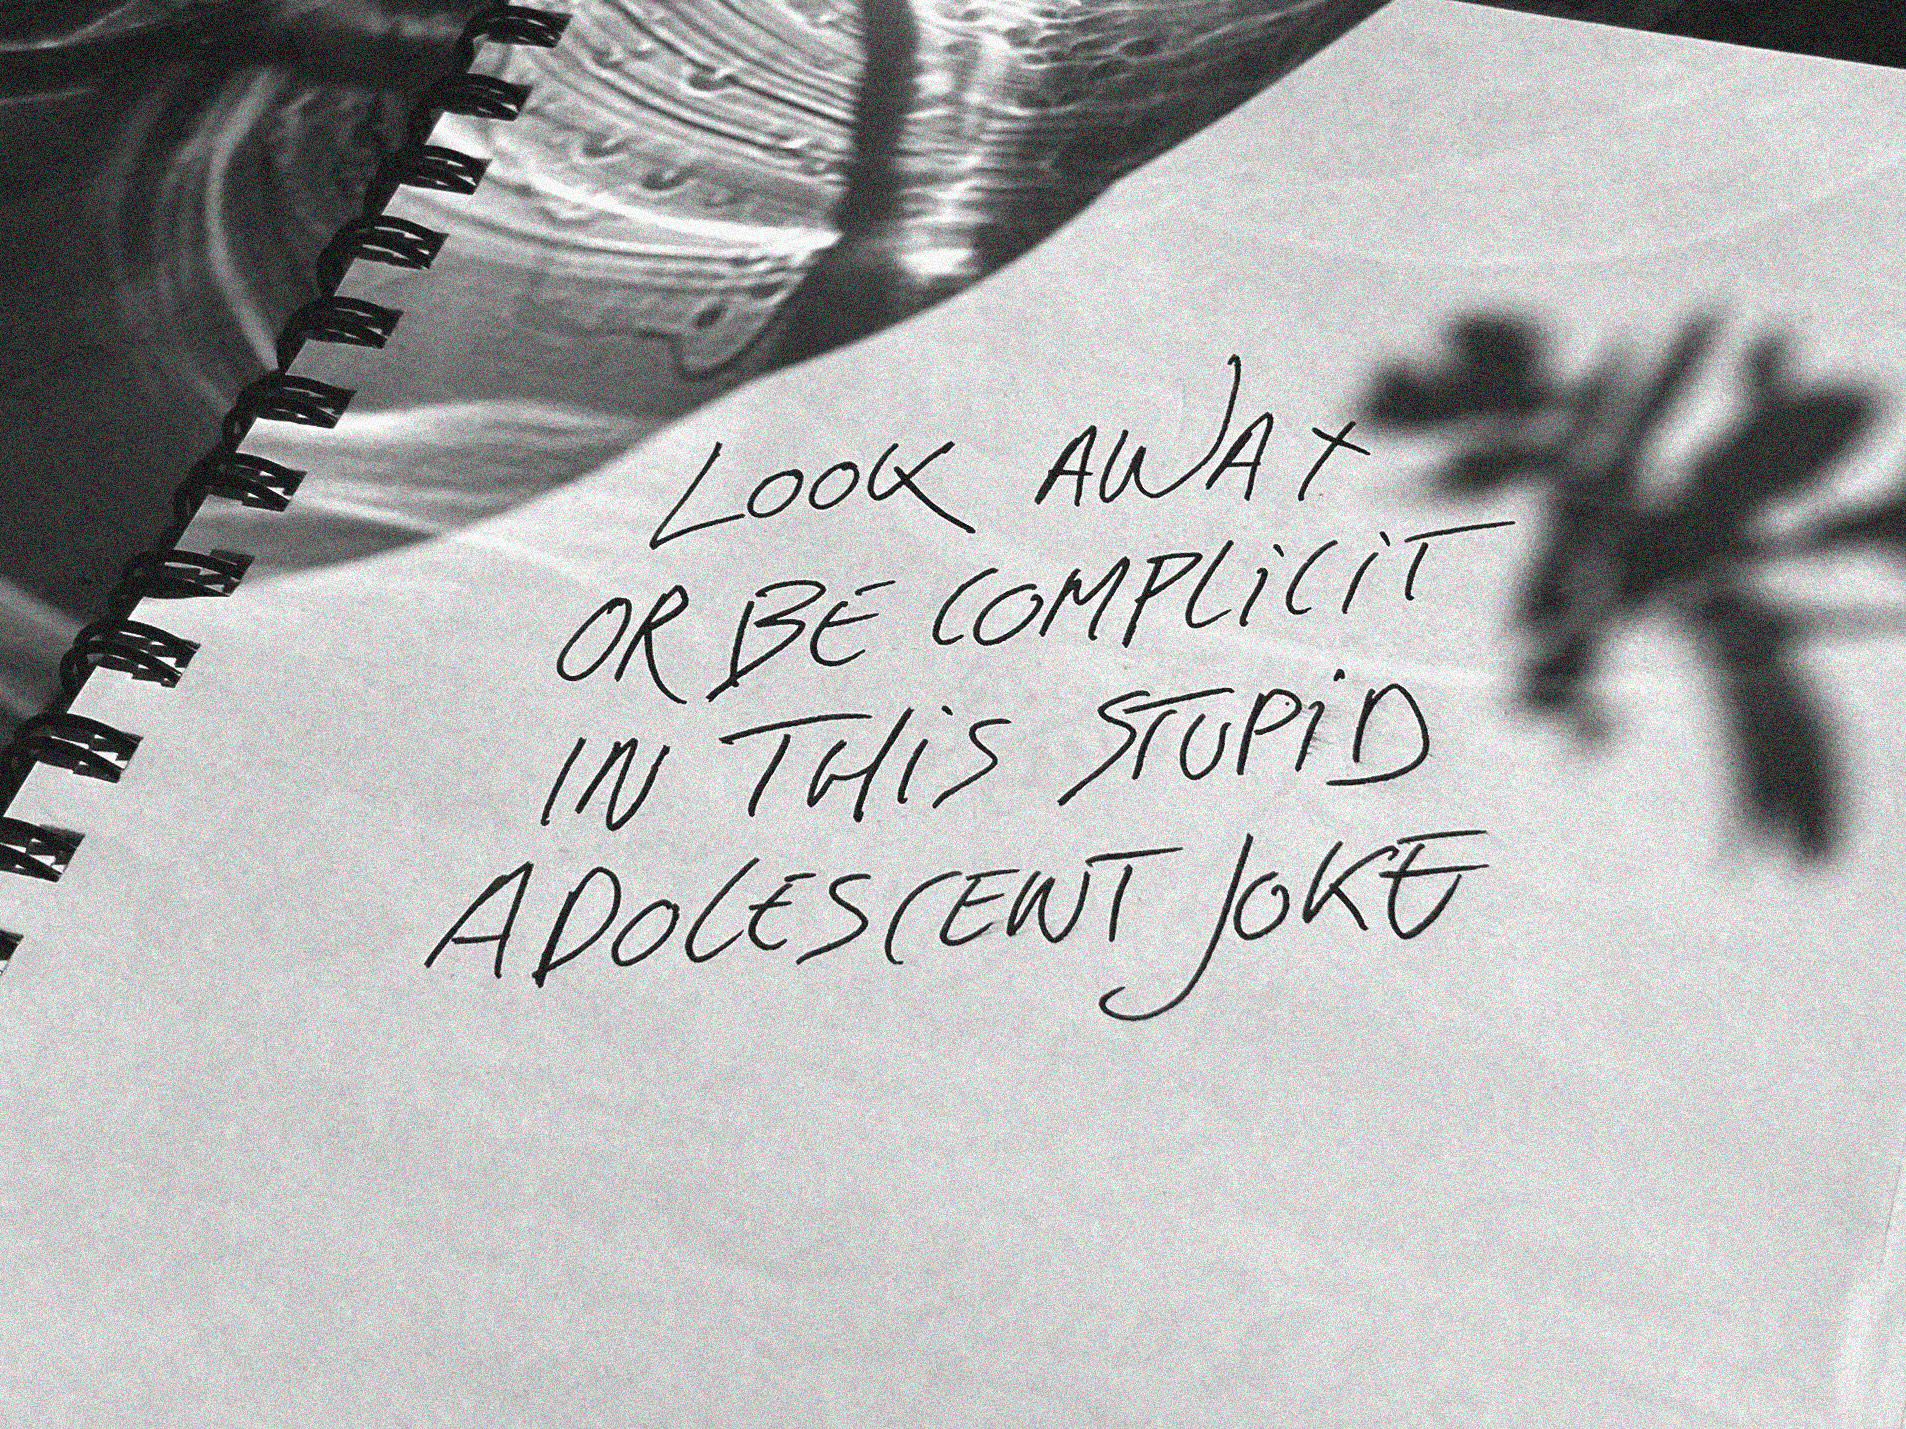 LOOK AWAY
OR BE COMPLICIT
IN THiS STUPiD
ADOLESCENT JOKE